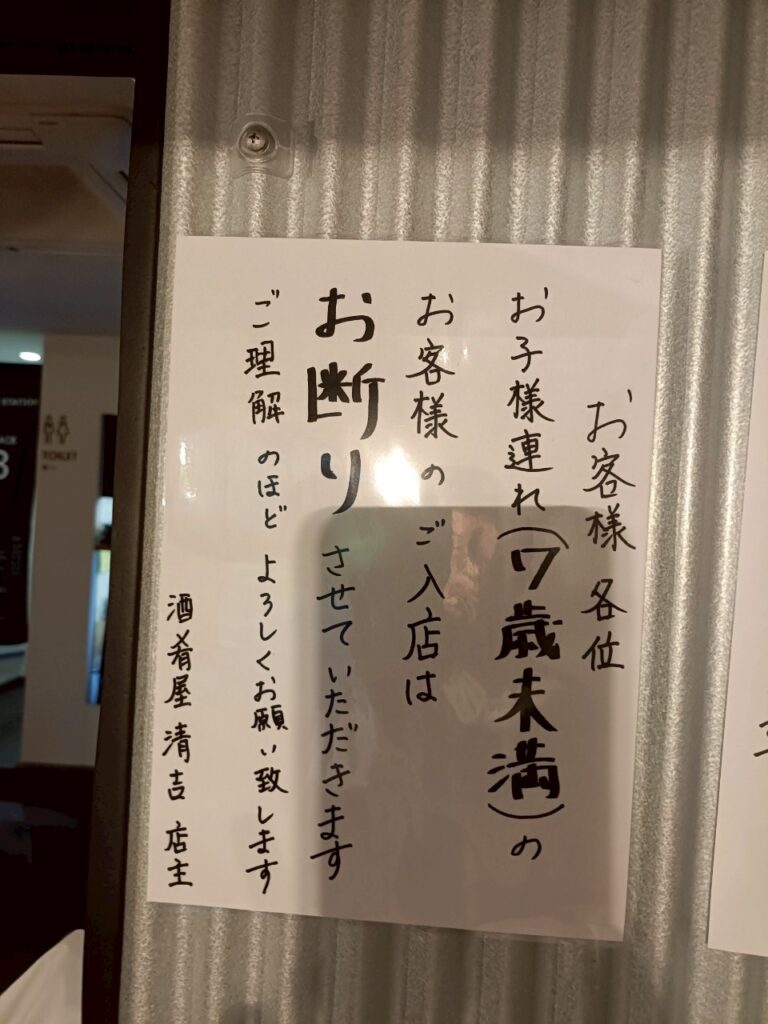 お客様 各位
お子様連れ(7歳未満)の
お客様のご入店は
お断りさせていただきます
ご理解のほど よろしくお願い致します
酒肴屋 清吉 店主
TOILET